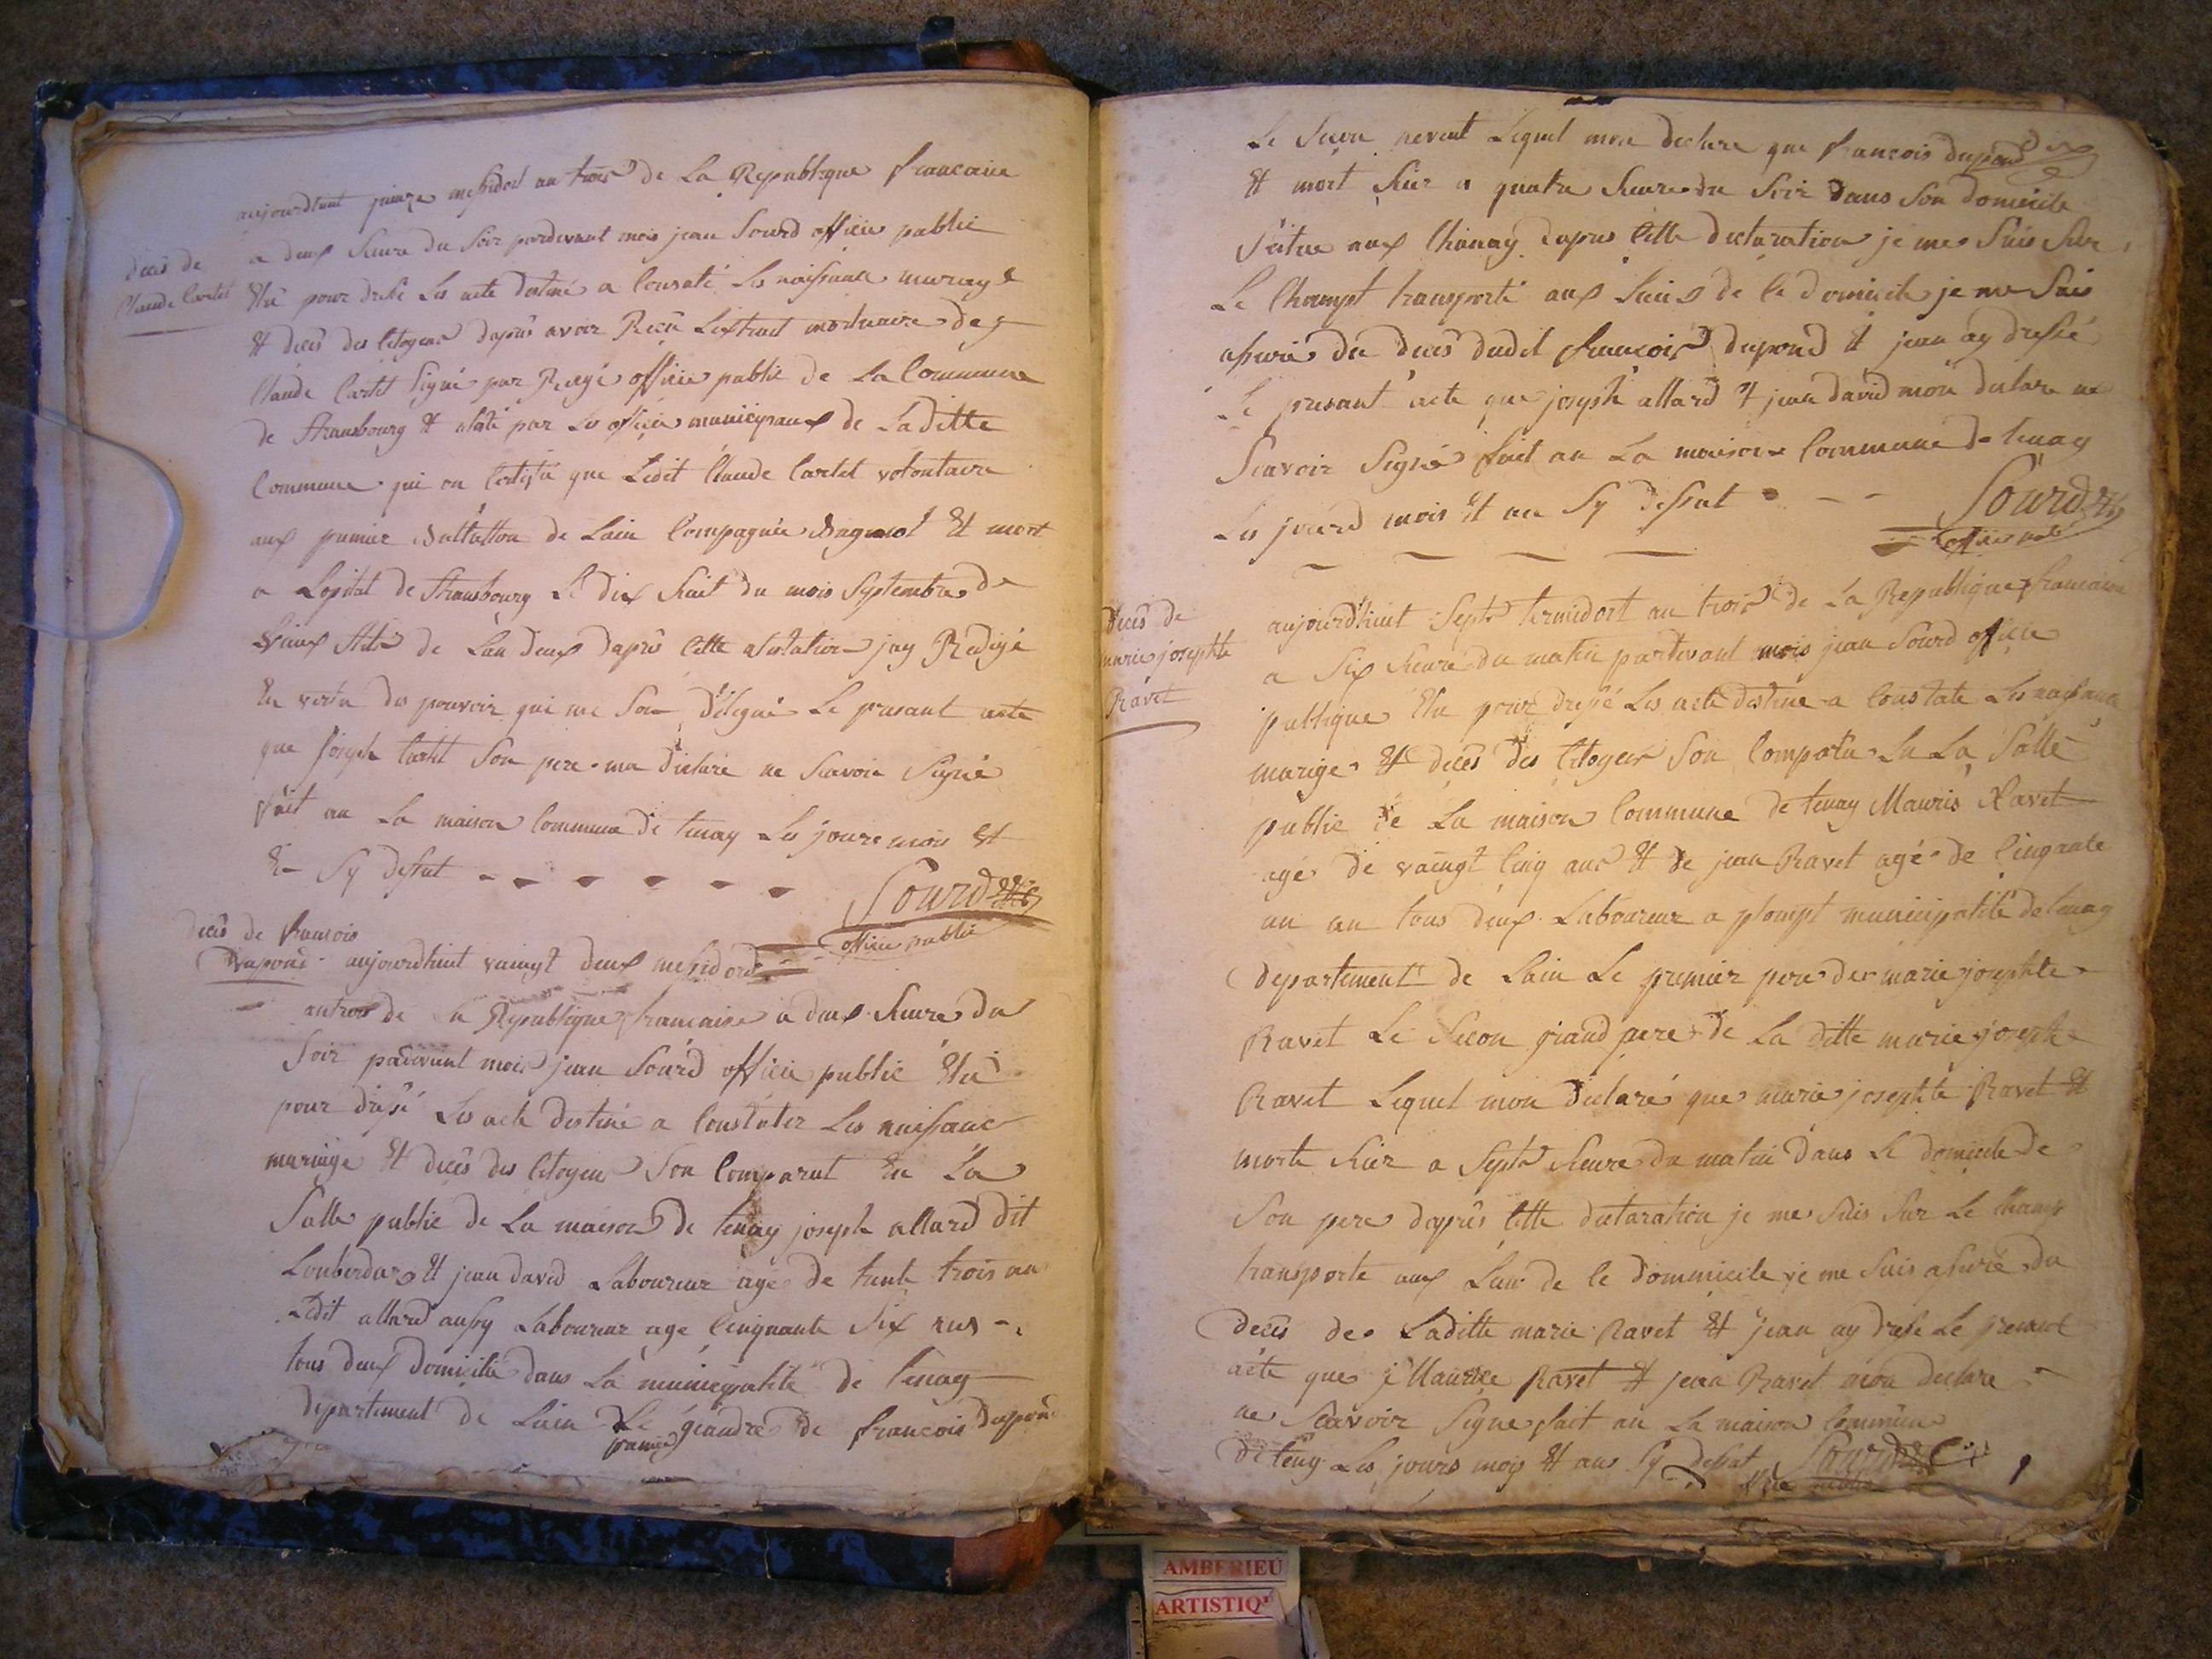 aujourdhuit quinze messidort an trois de La Republique francaise
deces de
Claude Cartet
a deux heure du soir pardevant mois jean Sourd officie public
Elu pour dressé Les acte destiné a Constaté Les naissance mariage
Et deces des Citoyens dapres avoir Recu Lextrait mortuaire de
Claude Cartet Signé par officie public de La Commune
de Strausbourg Et par Les officie municipaux de La ditte
Commune qui on Certifié que Ledit Claude Cartet volontaire
aux pumier Battallon de Lain Compagnie Et mort
a Lopital de Strausbourg Le dix huit du mois Septembre de
vieux stile de Lan deux dapres Cette jay Redigé
En vertu des pouvoir qui me Son délégué Le presant acte
que Joseph Cartet Son pere ma déclare ne Scavoir Signé
fait an La maison Commune de tenay Les jours mois Et
En Sy dessut
Sourd
officie public
deces de francois
Dupond
aujourdhuit vaingt deux messidord
antrois de La Republique francaise a deux heure du
Soir padevant mois jean Sourd officie public Elu
pour dressé Les acte destiné a Constater Les naissanc
mariage Et deces des Citoyens Son Comparut En La
Salle public de La maison de tenay joseph allard dit
Et jean david Laboureur agé de trente trois an
Ledit allard aussy Laboureur age Cinquante Six ans
tous deux domicilié dans La municipalité de tenay
departement de Lain Le premier geandre de francois dupond
Le Secon neveut Lequel mon declare que francois dupond
Et mort hier a quatre heure du Soir Dans Son domicile
Scitue aux Chanay dapres Cette declaration je me Suis Sur
Le Champt transporté aux Lieux de Ce domicile je me Suis
assuré du deces dudit francois dupond Et jean ay dressé
Le presant acte que joseph allard Et jean david mon declare ne
Scavoir Signé fait an La maison Commune de tenay
Les jourd mois Et an Sy dessut
Sourd
officie public
deces de
marie josephte
Ravet
aujourdhuit Sept termidort an trois de La Republique francaise
a Six heure du matin pardevant mois jean Sourd officie
publique Elu pour dressé Les acte destiné a Constate Les naissance
marige Et deces des Citoyens Son Comparu En La Salle
public de La maison Commune de tenay Mauris Ravet
agé de vaingt Cinq ans Et de jean Ravet agé de Cinqante
un an tous deux Laboureur a plompt municipalité de tenay
departement de Lain Le premier pere de marie josephte
Ravet Le Secon grand pere de La ditte marie joseph
Ravet Lequel mon declaré que marie josephte Ravet Et
morte hier a Sept heure du matin Dans Le domicile de
Son pere dapres Cette declaration je me Suis Sur Le Champ
transporte aux Lieu de Ce dommicile je me Suis assuré du
deces de Laditte marie Ravet Et jean ay dressé Le presant
acte que Maurice Ravet Et jean Ravet mon declare
ne Scavoir Signe fait an La maison Commune
de tenay Les jours mois Et an Sy dessut Sourd
officie public
AMBERIEU
ARTISTIQ'